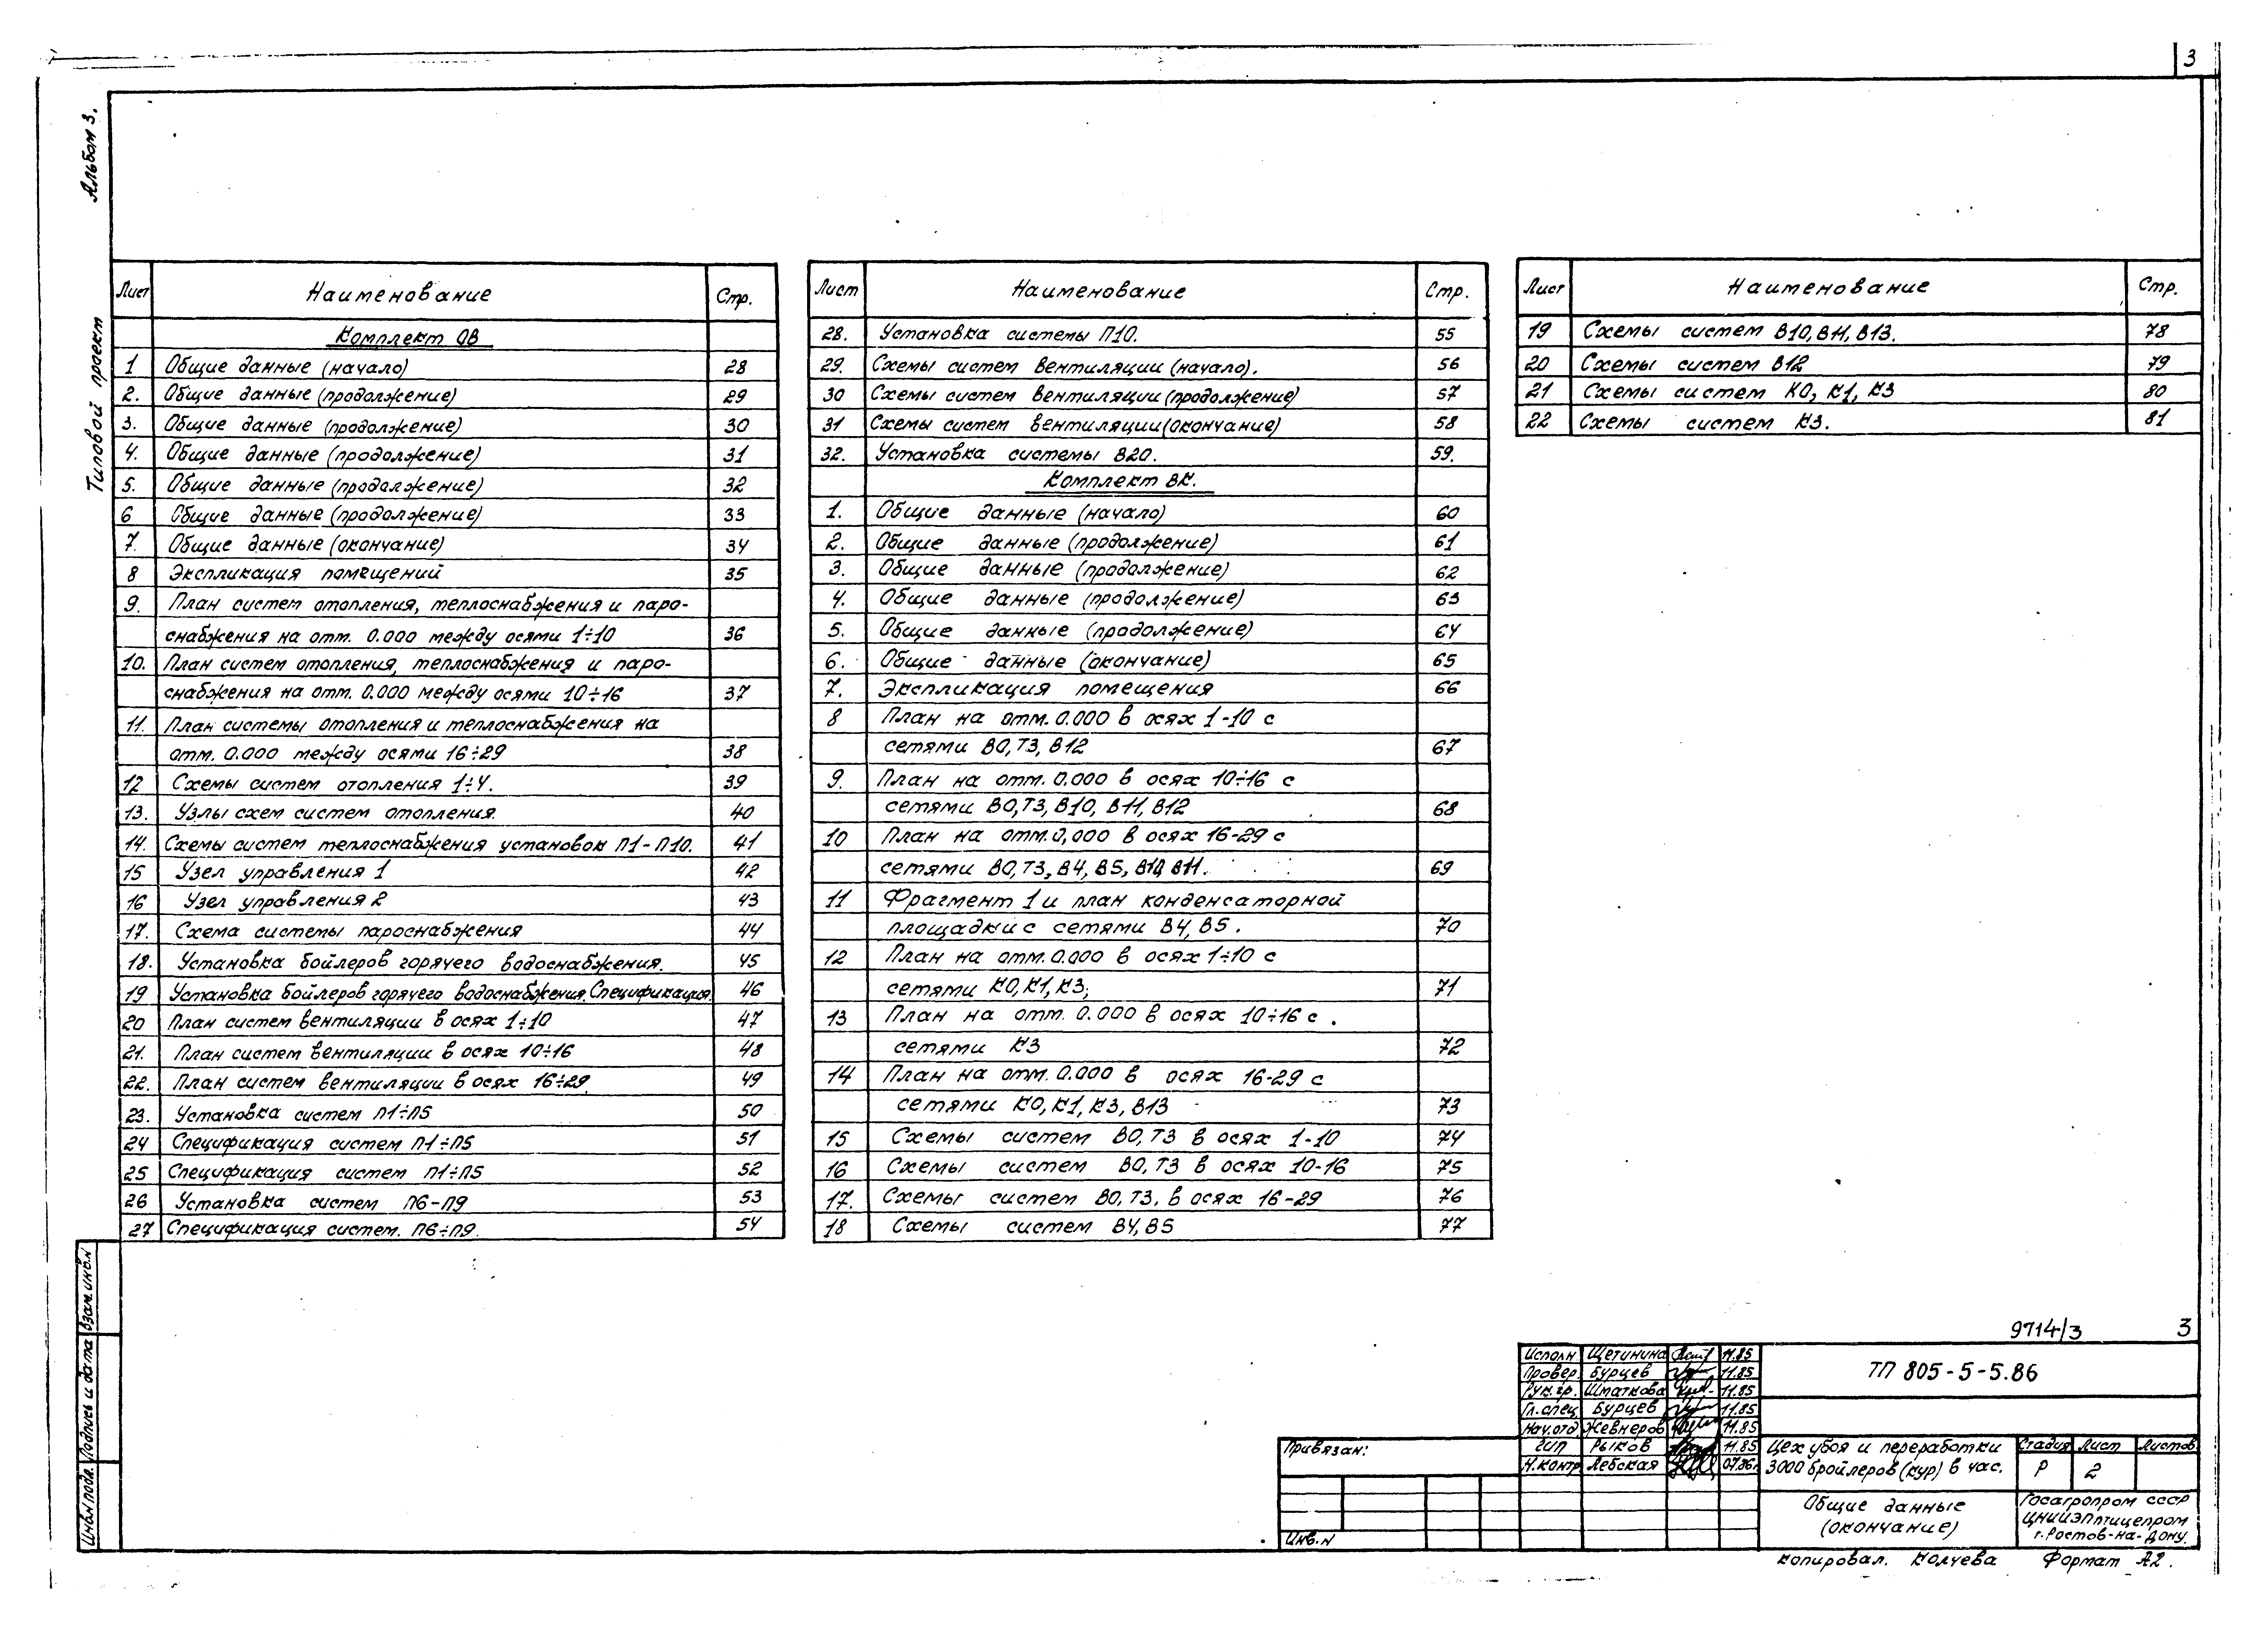 3
Альбом 3.
Типовой проект
Лист Наименование Стр.
Комплект ОВ
1 Общие данные (начало) 28
2. Общие данные (продолжение) 29
3. Общие данные (продолжение) 30
4. Общие данные (продолжение) 31
5. Общие данные (продолжение) 32
6 Общие данные (продолжение) 33
7. Общие данные (окончание) 34
8 Экспликация помещений 35
9. План систем отопления, теплоснабжения и паро-
снабжения на отм. 0.000 между осями 1÷10 36
10. План систем отопления, теплоснабжения и паро-
снабжения на отм. 0.000 между осями 10÷16 37
11. План системы отопления и теплоснабжения на
отм. 0.000 между осями 16÷29 38
12 Схемы систем отопления 1÷4. 39
13. Узлы схем систем отопления. 40
14. Схемы систем теплоснабжения установок П1-П10. 41
15 Узел управления 1 42
16 Узел управления 2 43
17. Схема системы пароснабжения 44
18. Установка бойлеров горячего водоснабжения. 45
19 Установка бойлеров горячего водоснабжения. Спецификация. 46
20 План систем вентиляции в осях 1÷10 47
21. План систем вентиляции в осях 10÷16 48
22. План систем вентиляции в осях 16÷29 49
23. Установка систем П1÷П5 50
24 Спецификация систем П1÷П5 51
25 Спецификация систем П1÷П5 52
26 Установка систем П6-П9 53
27 Спецификация систем. П6÷П9. 54
Лист Наименование Стр.
28. Установка системы П10. 55
29. Схемы систем вентиляции (начало). 56
30 Схемы систем вентиляции (продолжение) 57
31 Схемы систем вентиляции (окончание) 58
32. Установка системы В20. 59.
Комплект ВК.
1. Общие данные (начало) 60
2. Общие данные (продолжение) 61
3. Общие данные (продолжение) 62
4. Общие данные (продолжение) 63
5. Общие данные (продолжение) 64
6. Общие данные (окончание) 65
7. Экспликация помещения 66
8 План на отм. 0.000 в осях 1-10 с
сетями В0, Т3, В12 67
9. План на отм. 0.000 в осях 10÷16 с
сетями В0, Т3, В10, В11, В12 68
10 План на отм. 0,000 в осях 16-29 с
сетями В0, Т3, В4, В5, В10, В11. 69
11 Фрагмент 1 и план конденсаторной
площадки с сетями В4, В5. 70
12 План на отм. 0.000 в осях 1÷10 с
сетями К0, К1, К3; 71
13 План на отм. 0.000 в осях 10÷16 с.
сетями К3 72
14 План на отм. 0.000 в осях 16-29 с
сетями К0, К1, К3, В13 73
15 Схемы систем В0, Т3 в осях 1-10 74
16 Схемы систем В0, Т3 в осях 10-16 75
17. Схемы систем В0, Т3, в осях 16-29 76
18 Схемы систем В4, В5 77
Лист Наименование Стр.
19 Схемы систем В10, В11, В13. 78
20 Схемы систем В12 79
21 Схемы систем К0, К1, К3 80
22 Схемы систем К3. 81
Взам.инв.N
Подпись и дата
Инв.N подл.
9714/3 3
Исполн Щетинина 11.85
Провер. Бурцев 11.85
Рук.гр. Шматкова 11.85
Гл.спец. Бурцев 11.85
Нач.отд Жевнеров 11.85
ГИП Рыков 11.85
Н.контр Лебская 07.86г
ТП 805-5-5.86
Цех убоя и переработки
3000 бройлеров (кур) в час.
Стадия Лист Листов
Р 2
Общие данные
(окончание)
Госагропром СССР
ЦНИИЭПптицепром
г.Ростов-на-Дону.
Привязан:
Инв.N
Копировал. Колчева Формат А2.